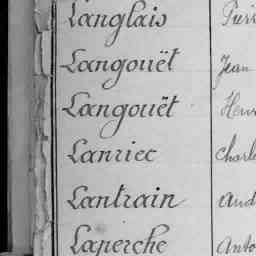 Langlais Pierr
Langouët Jean
Langouët Henr
Lanriec Charle
Lantrain And
Laperche Anto